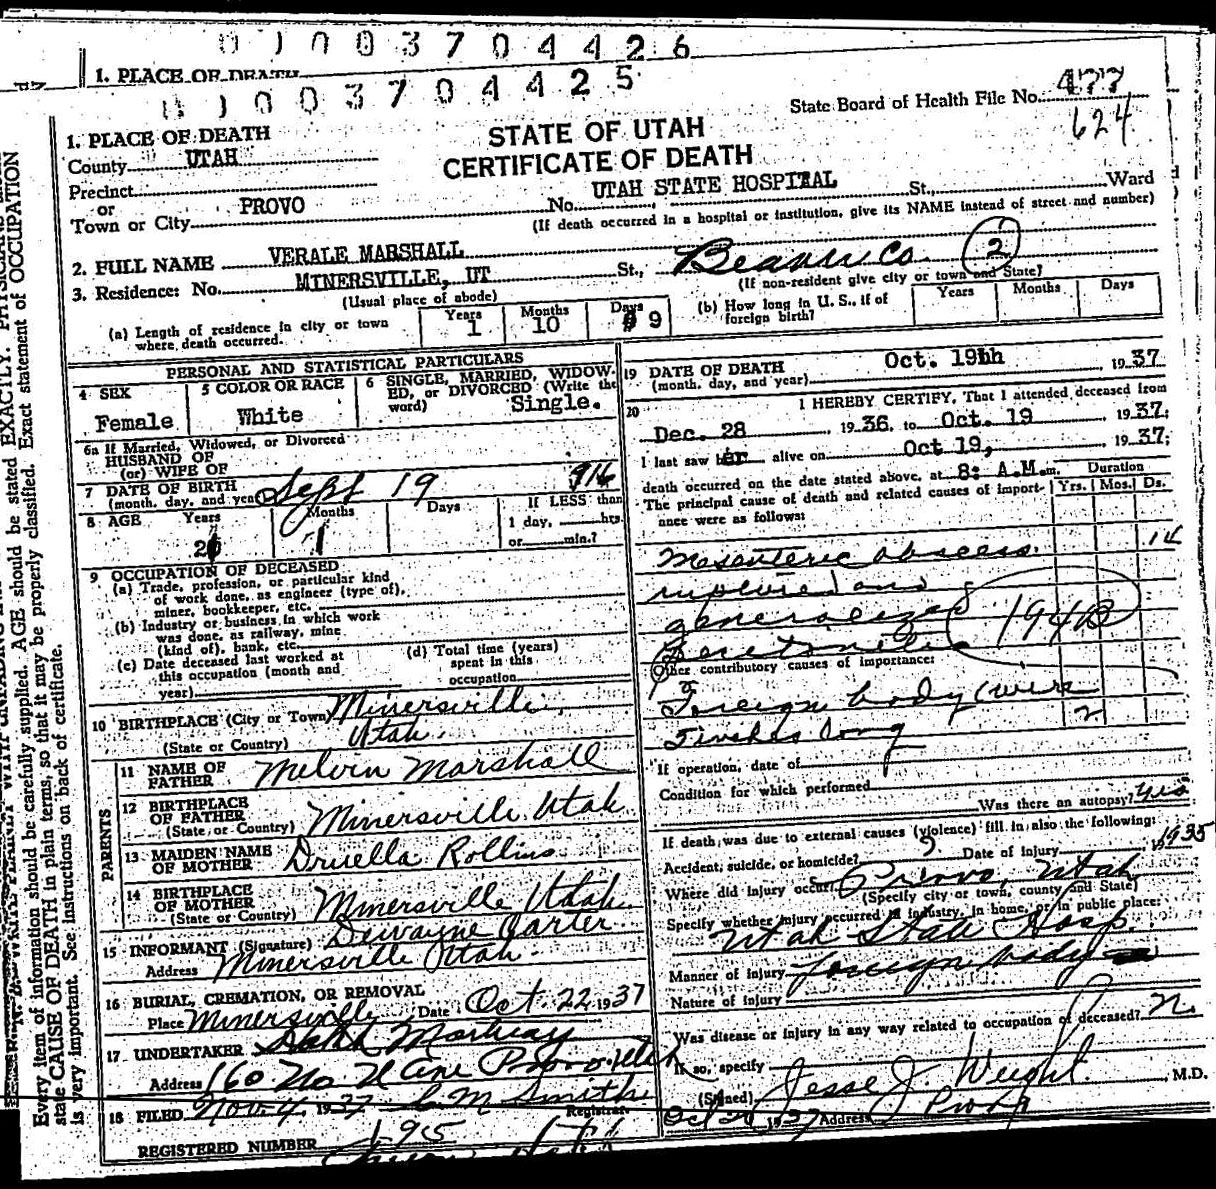 0 1 0 0 3 7 0 4 4 2 6
1. PLACE OF DEATH
0 1 0 0 3 7 0 4 4 2 5
State Board of Health File No. 477
624
1. PLACE OF DEATH
STATE OF UTAH
CERTIFICATE OF DEATH
County UTAH
Precinct
or
Town or City PROVO No. UTAH STATE HOSPITAL St., Ward
(If death occurred in a hospital or institution, give its NAME instead of street and number)
2. FULL NAME VERALE MARSHALL
3. Residence: No. MINERSVILLE, UT St., Beaver Co. 2
(Usual place of abode) (If non-resident give city or town and State)
(a) Length of residence in city or town where death occurred. Years 1 Months 10 Days 9
(b) How long in U. S., if of foreign birth? Years Months Days
PERSONAL AND STATISTICAL PARTICULARS
4 SEX Female
5 COLOR OR RACE White
6 SINGLE, MARRIED, WIDOWED, or DIVORCED (Write the word) Single.
6a If Married, Widowed, or Divorced
HUSBAND OF
(or) WIFE OF
7 DATE OF BIRTH (month, day, and year) Sept 19 916
8 AGE Years Months Days If LESS than
1 day, hrs.
or min.?
1
9 OCCUPATION OF DECEASED
(a) Trade, profession, or particular kind
of work done, as engineer (type of),
miner, bookkeeper, etc.
(b) Industry or business in which work
was done, as railway, mine
(kind of), bank, etc.
(c) Date deceased last worked at
this occupation (month and
year)
(d) Total time (years)
spent in this
occupation
10 BIRTHPLACE (City or Town) Minersville,
(State or Country) Utah.
PARENTS
11 NAME OF FATHER Melvin Marshall
12 BIRTHPLACE OF FATHER (State or Country) Minersville Utah
13 MAIDEN NAME OF MOTHER Druella Rollins
14 BIRTHPLACE OF MOTHER (State or Country) Minersville Utah
15 INFORMANT (Signature) Dewayne Carter
Address Minersville Utah.
16 BURIAL, CREMATION, OR REMOVAL
Place Minersville Date Oct 22 1937
17 UNDERTAKER Mortuary
Address 160 No. Provo Utah
18 FILED Nov. 4 1937 C M Smith
Registrar.
REGISTERED NUMBER 195
19 DATE OF DEATH (month, day, and year) Oct. 19th, 1937
20 I HEREBY CERTIFY, That I attended deceased from
Dec. 28, 1936, to Oct. 19 1937;
I last saw her alive on Oct 19, 1937;
death occurred on the date stated above, at 8: A.M. m.
The principal cause of death and related causes of importance were as follows:
Duration
Yrs. Mos. Ds.
Mesenteric abscess 14
ruptured and
generalized
194B
Other contributory causes of importance:
Foreign body (wire
7 inches long 2
If operation, date of
Condition for which performed
Was there an autopsy? yes
If death was due to external causes (violence) fill in also the following:
Accident, suicide, or homicide? ? Date of injury 1935
Where did injury occur? Provo, Utah
(Specify city or town, county and State)
Specify whether injury occurred in industry, in home, or in public place:
Utah State Hosp.
Manner of injury foreign body
Nature of injury
Was disease or injury in any way related to occupation of deceased? No
If so, specify
(Signed) Jesse J. Weight, M.D.
Oct 20 1937 Address Provo
Every item of information should be carefully supplied. AGE should be stated EXACTLY.
state CAUSE OF DEATH in plain terms, so that it may be properly classified. Exact statement of OCCUPATION
is very important. See instructions on back of certificate.